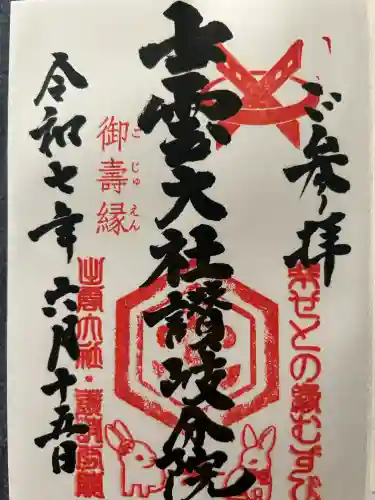 ご参り拝
幸せとの縁むすび
出雲大社讃岐分院
御壽縁
ご じゅ えん
出雲大社・讃岐分院
令和七年六月十五日